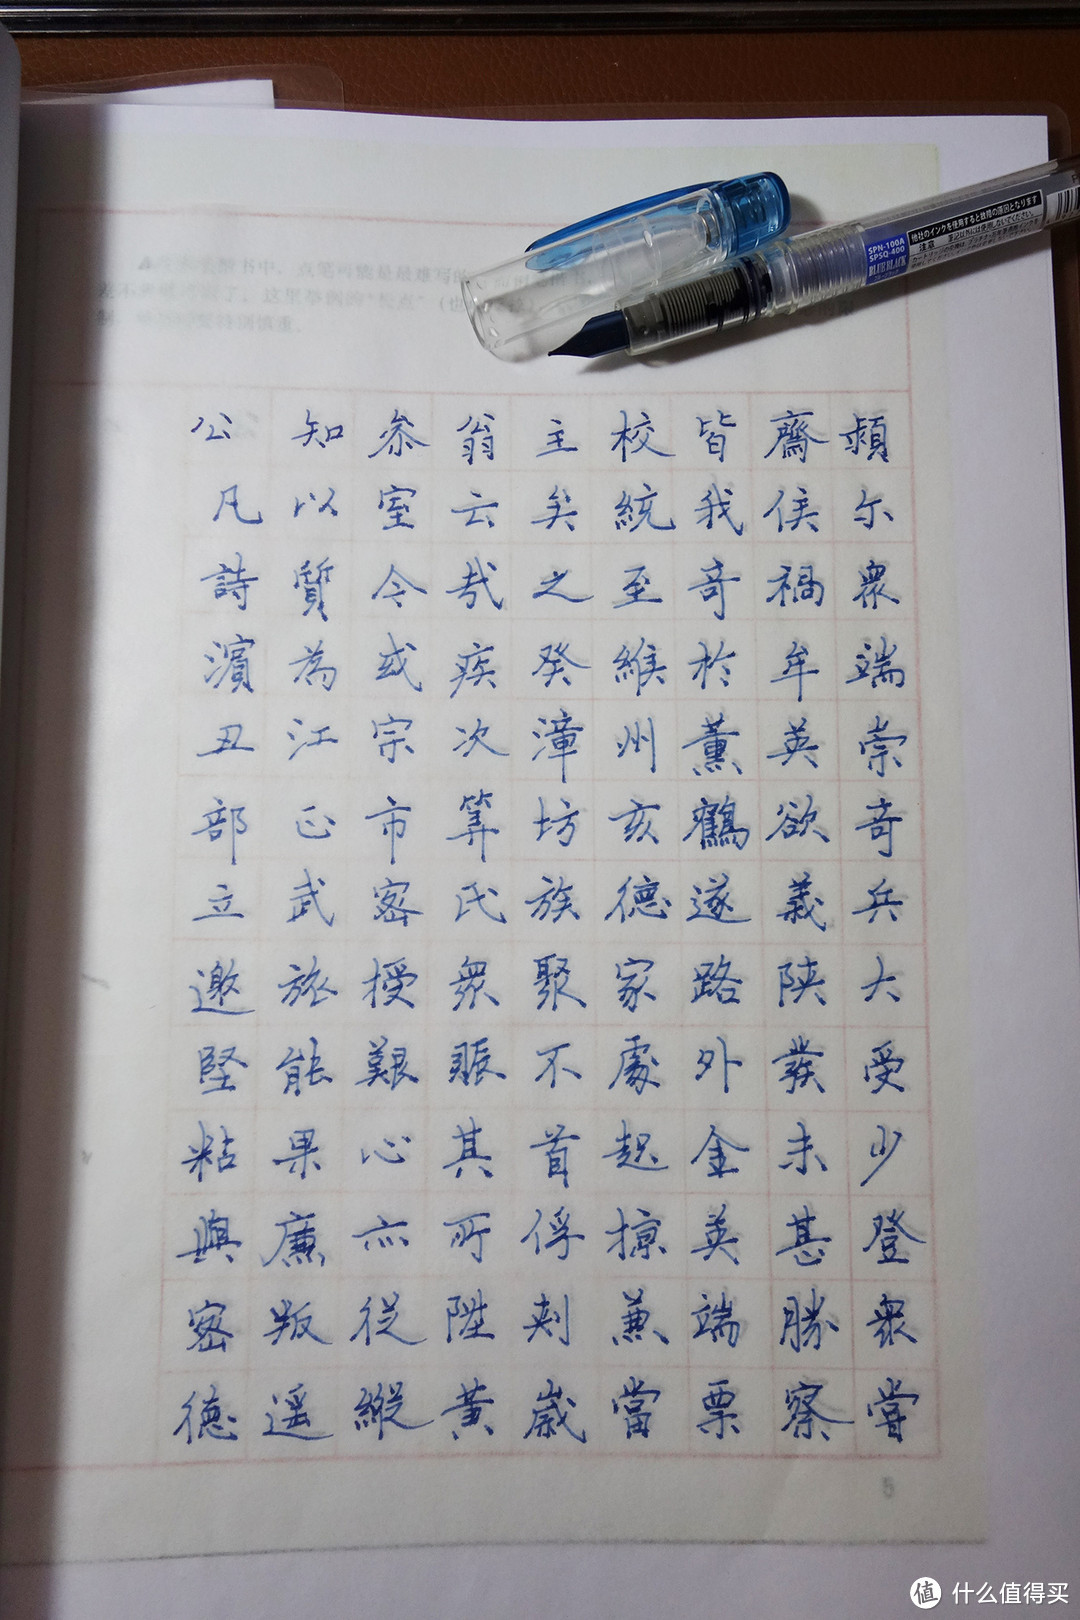 楷书中，点笔可能是最难写的
这里举例的
特别慎重。
他社のインクを使用すると故障の原因となります
注意
SPN-100A
SPSQ-400
BLUE BLACK
頻尔眾端崇奇兵大受少登眾嘗
齋侯禍牟英欲義陝發未甚勝察
皆我奇於薰鶴遂路外金英端票
校統至維州亥德家處起掠兼當
主矣之癸漳坊族聚不首俘刺歲
翁云哉疾次算氏眾賑其所陞黃
叅室令或宗市密授艱心亦從縱
知以質為江正武旅能果廉叛遥
公凡詩濱丑部立邀堅粘與密德
值 什么值得买